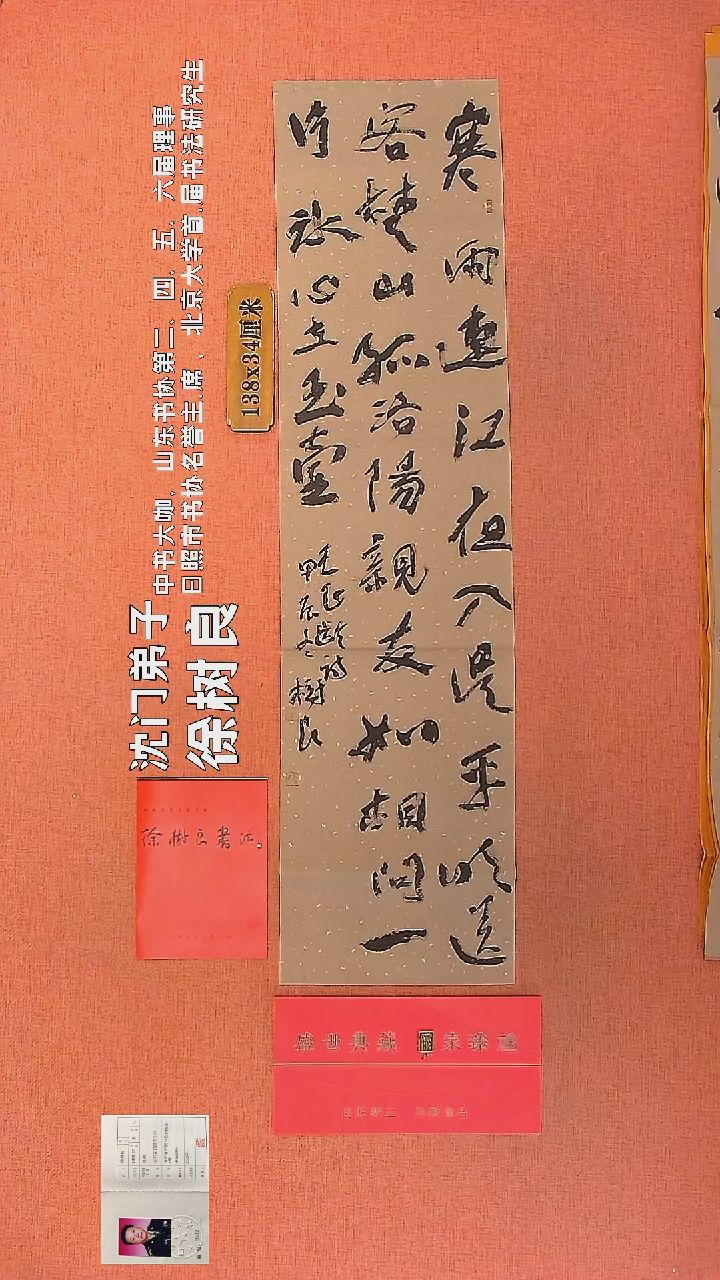 寒雨連江夜入平明送
客楚山孤洛陽親友如相問一
片冰心在玉壺
王昌齡詩
甲辰冬 樹良
沈门弟子
徐树良
中书大咖、山东书协第二、四、五、六届理事
日照市书协名誉主席、北京大学首届书法研究生
138x34厘米
徐樹良書法
盛世典藏 國家臻禮